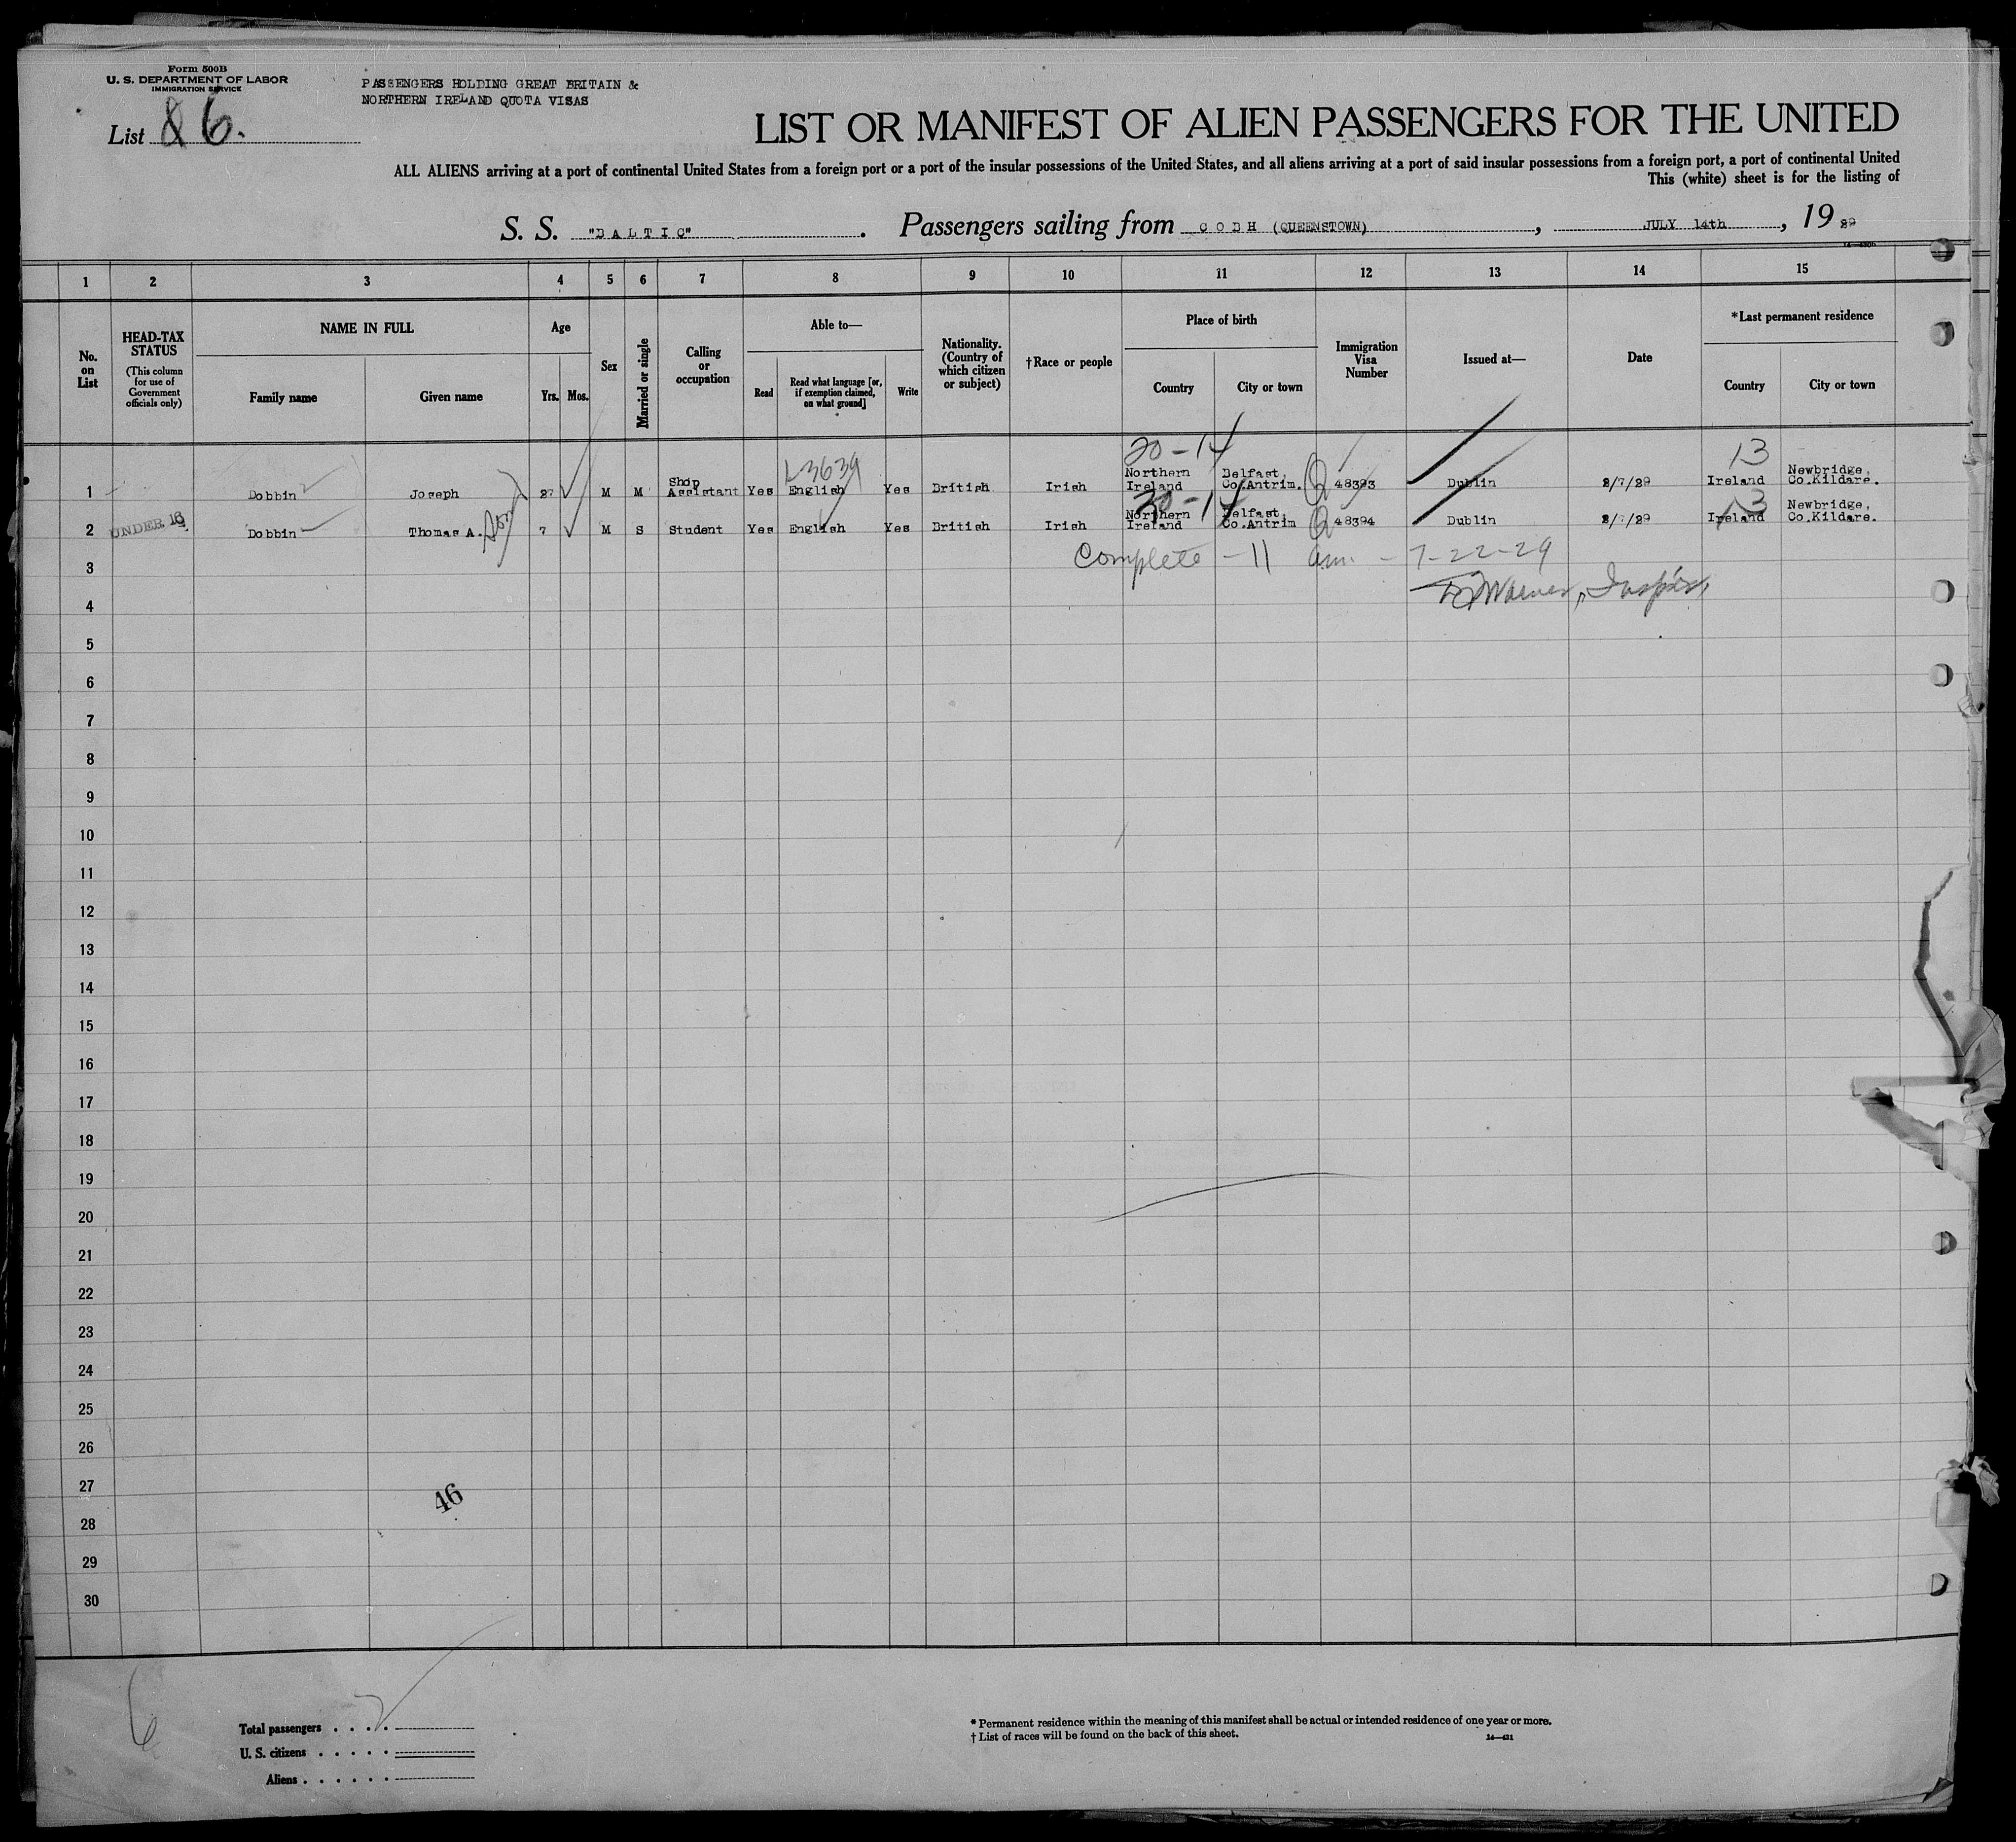 Form 500B
U. S. DEPARTMENT OF LABOR
IMMIGRATION SERVICE
PASSENGERS HOLDING GREAT BRITAIN &
NORTHERN IRELAND QUOTA VISAS
List 6.
LIST OR MANIFEST OF ALIEN PASSENGERS FOR THE UNITED
ALL ALIENS arriving at a port of continental United States from a foreign port or a port of the insular possessions of the United States, and all aliens arriving at a port of said insular possessions from a foreign port, a port of continental United
This (white) sheet is for the listing of
S. S. "BALTIC". Passengers sailing from COBH (QUEENSTOWN), JULY 14th, 1929
1 2 3 4 5 6 7 8 9 10 11 12 13 14 15
No. on List
HEAD-TAX STATUS
(This column for use of Government officials only)
NAME IN FULL
Family name Given name
Age
Yrs. Mos.
Sex
Married or single
Calling or occupation
Able to—
Read Read what language [or, if exemption claimed, on what ground] Write
Nationality. (Country of which citizen or subject)
†Race or people
Place of birth
Country City or town
Immigration Visa Number
Issued at—
Date
*Last permanent residence
Country City or town
20-14 13
L3639
1 Dobbin Joseph 27 M M Shop Assistant Yes English Yes British Irish Northern Ireland Belfast, Co.Antrim. Q 48393 Dublin 2/7/29 Ireland Newbridge, Co.Kildare.
20-14 13
2 UNDER 16 Dobbin Thomas A. Son 7 M S Student Yes English Yes British Irish Northern Ireland Belfast, Co.Antrim Q 48394 Dublin 2/7/29 Ireland Newbridge, Co.Kildare.
Complete - 11 am. - 7-22-29
3
4
5
6
7
8
9
10
11
12
13
14
15
16
17
18
19
20
21
22
23
24
25
26
27
46
28
29
30
Total passengers
U. S. citizens
Aliens
* Permanent residence within the meaning of this manifest shall be actual or intended residence of one year or more.
† List of races will be found on the back of this sheet.
14—431